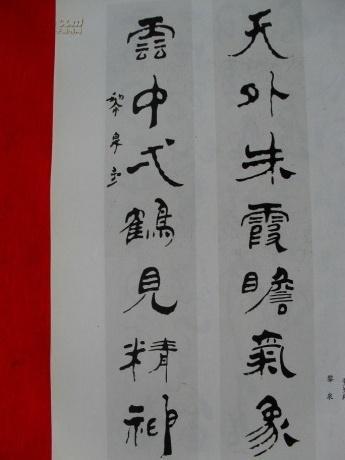 天外朱霞瞻氣象
雲中弍鶴見精神
黎泉
黎泉